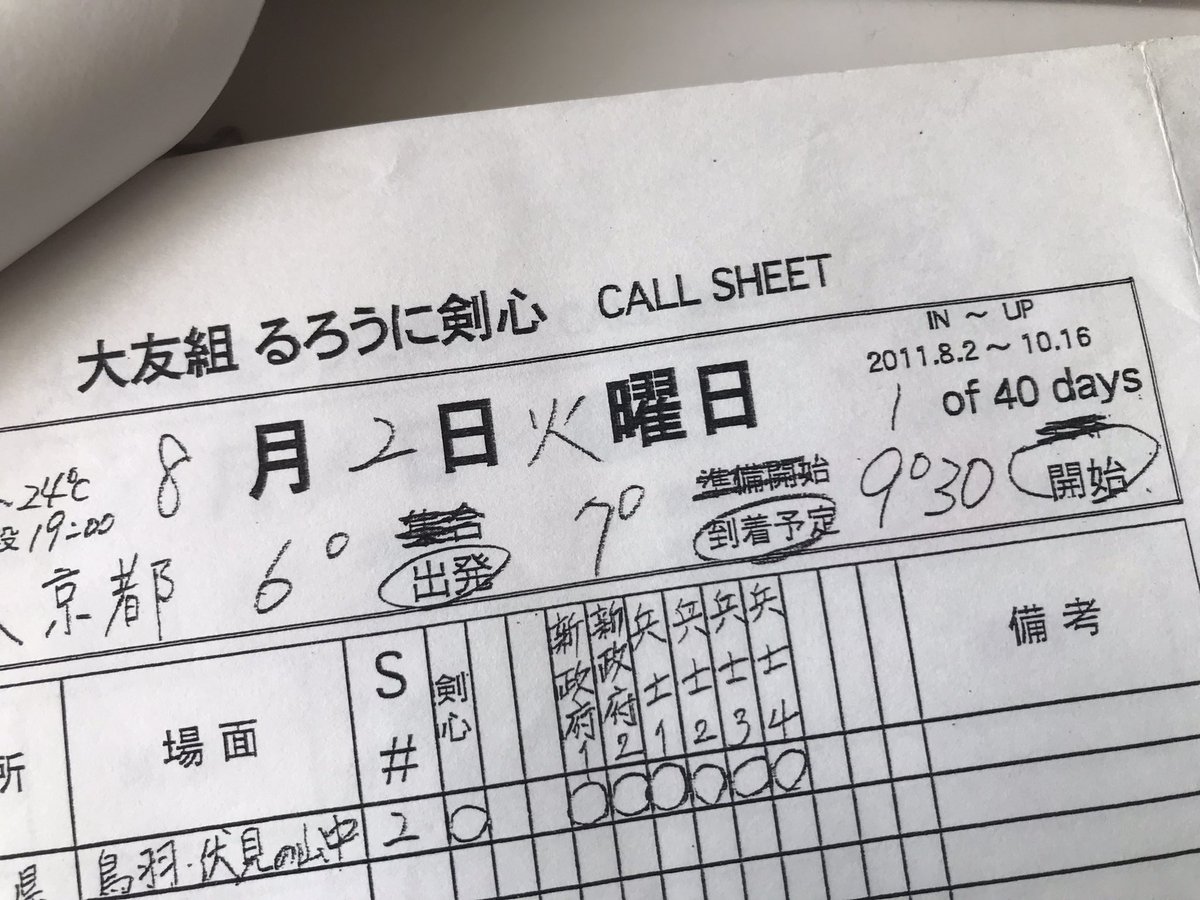 大友組 るろうに剣心 CALL SHEET
IN ～ UP
2011.8.2～10.16
8月2日火曜日 1 of 40 days
～24℃
19:00
京都 6° 集合 7° 準備開始 9°30
出発 到着予定 開始
所 場面 S# 剣心 新政府1 新政府2 兵士1 兵士2 兵士3 兵士4 備考
県 鳥羽・伏見の山中 2 ○ ○ ○ ○ ○ ○ ○